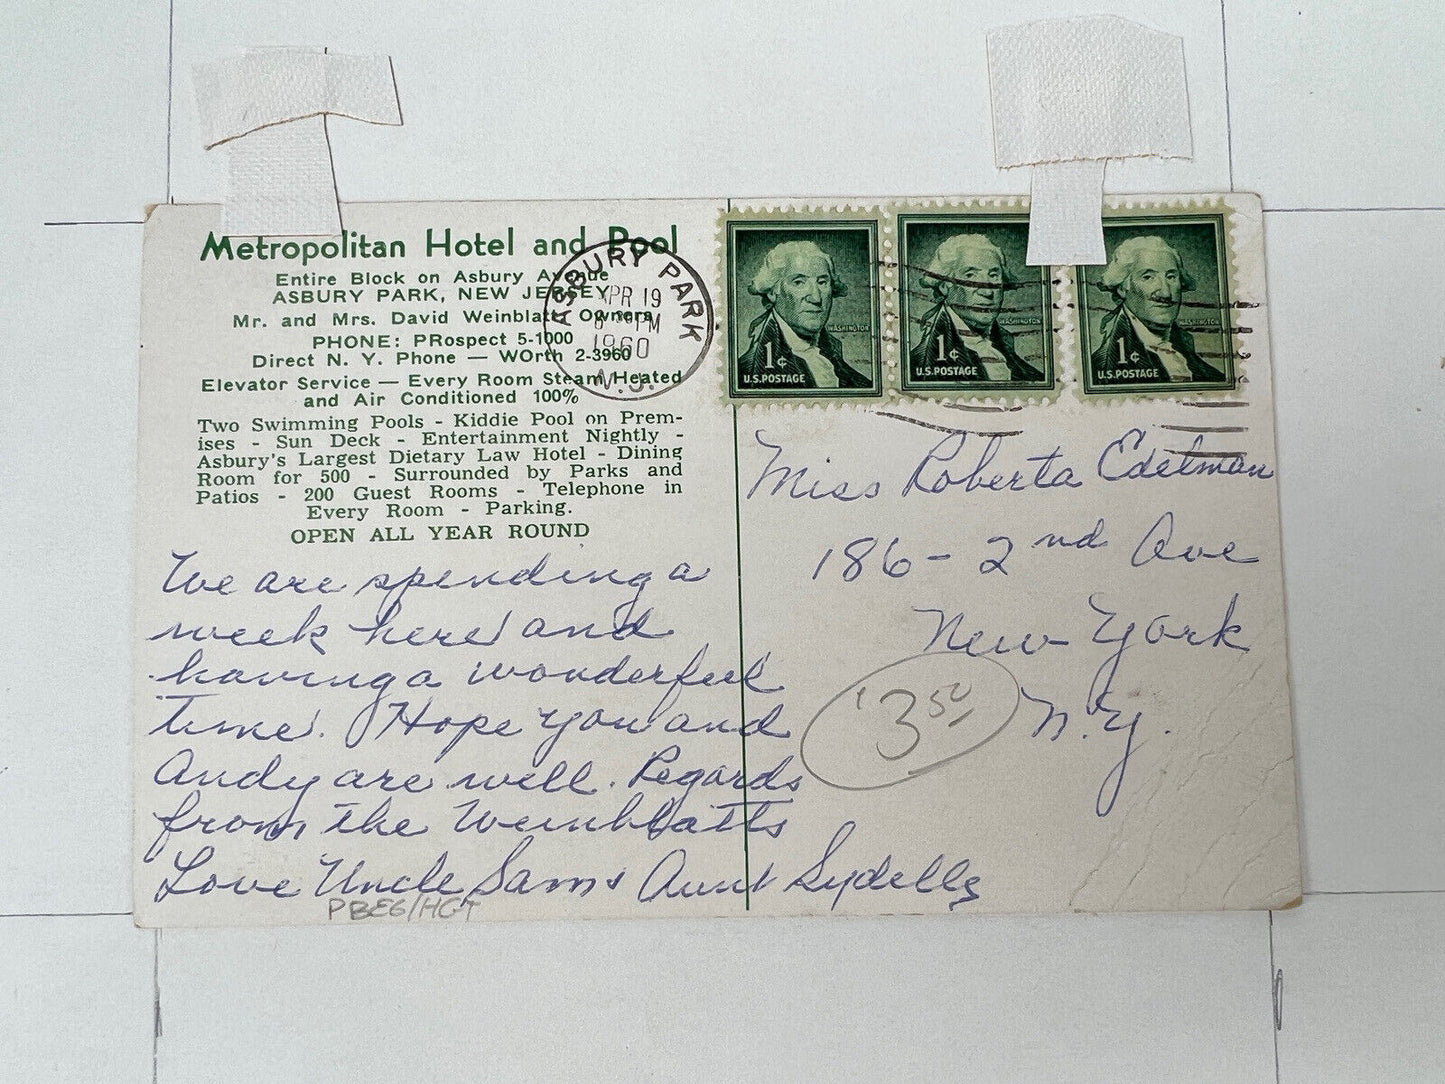 Metropolitan Hotel and Pool
Entire Block on Asbury Avenue
ASBURY PARK, NEW JERSEY
Mr. and Mrs. David Weinblatt, Owners
PHONE: PRospect 5-1000
Direct N. Y. Phone — WOrth 2-3960
Elevator Service — Every Room Steam Heated
and Air Conditioned 100%
Two Swimming Pools - Kiddie Pool on Prem-
ises - Sun Deck - Entertainment Nightly -
Asbury's Largest Dietary Law Hotel - Dining
Room for 500 - Surrounded by Parks and
Patios - 200 Guest Rooms - Telephone in
Every Room - Parking.
OPEN ALL YEAR ROUND
ASBURY PARK
APR 19
PM
1960
N.J.
WASHINGTON
1¢
U.S. POSTAGE
WASHINGTON
1¢
U.S. POSTAGE
WASHINGTON
1¢
U.S. POSTAGE
We are spending a
week here and
having a wonderful
time. Hope you and
Andy are well. Regards
from the Weinblatts
Love Uncle Sam + Aunt Sydelle
Miss Roberta Edelman
186 - 2nd Ave
New York
N.Y.
3 50
PBE6/HGT